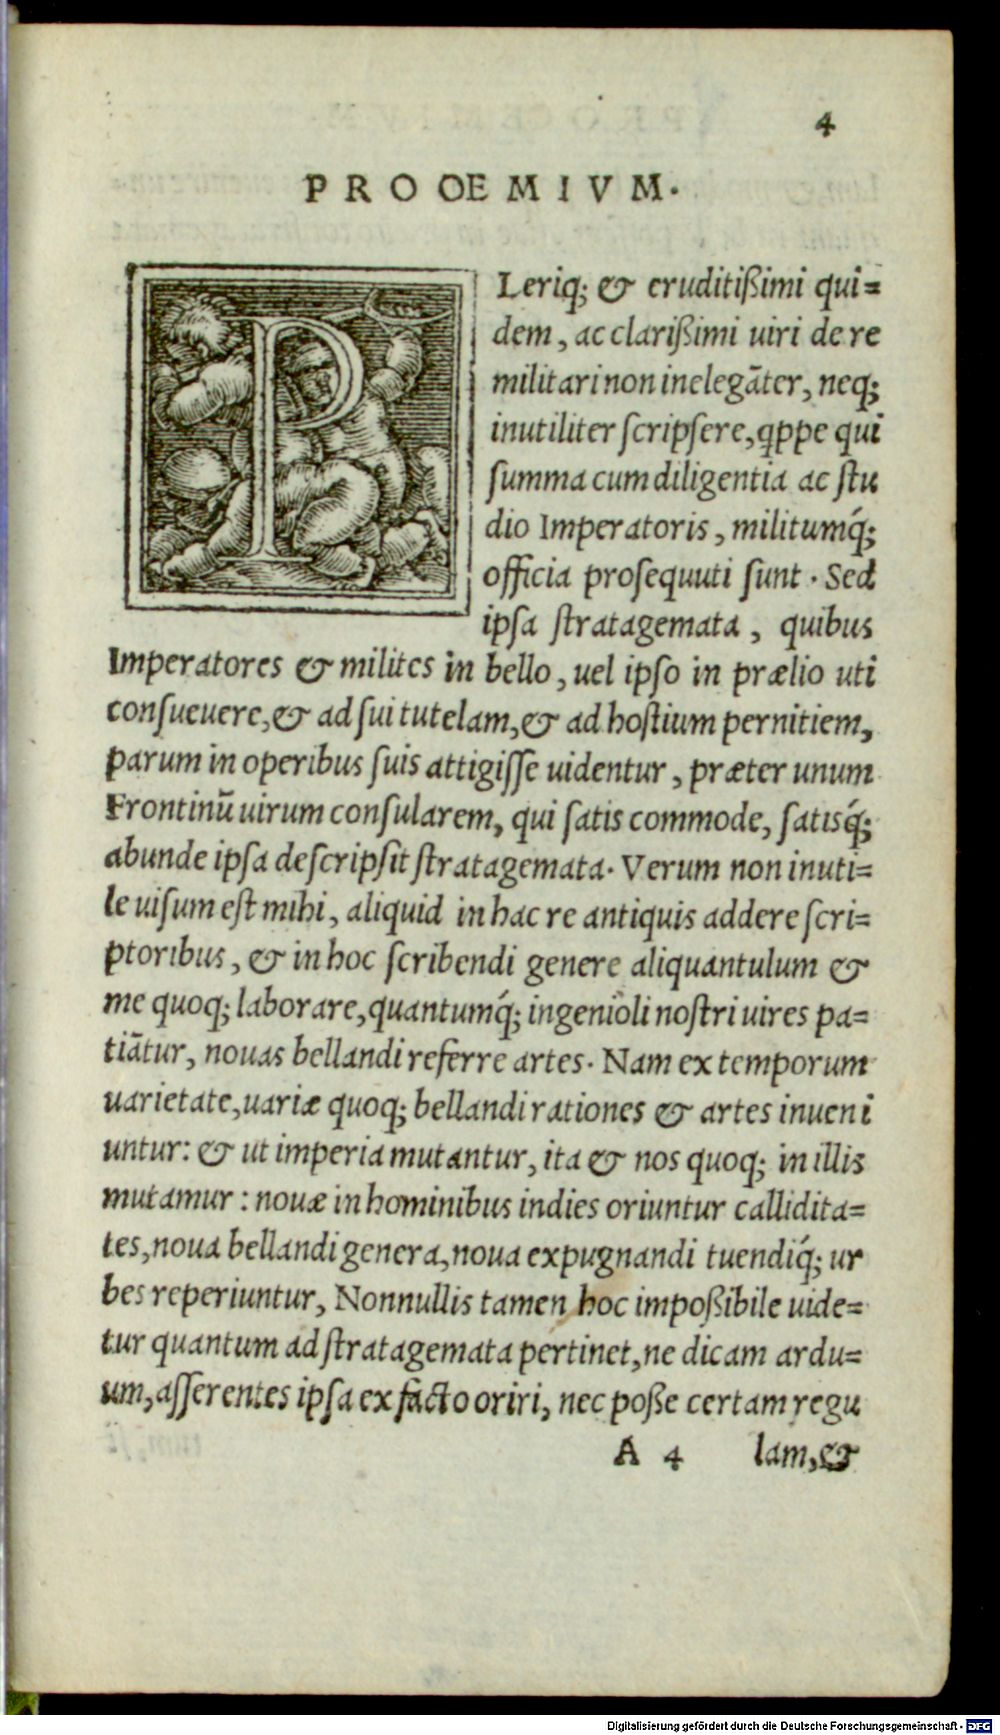 4
PROOEMIVM.
PLeriq; & eruditißimi qui=
dem, ac clarißimi uiri de re
militari non inelegãter, neq;
inutiliter ſcripſere, qppe qui
ſumma cum diligentia ac ſtu
dio Imperatoris, militumq́;
officia proſequuti ſunt. Sed
ipſa ſtratagemata, quibus
Imperatores & milites in bello, uel ipſo in prælio uti
conſueuere, & ad ſui tutelam, & ad hoſtium pernitiem,
parum in operibus ſuis attigiſſe uidentur, præter unum
Frontinũ uirum conſularem, qui ſatis commode, ſatisq́;
abunde ipſa deſcripſit ſtratagemata. Verum non inuti=
le uiſum eſt mihi, aliquid in hac re antiquis addere ſcri=
ptoribus, & in hoc ſcribendi genere aliquantulum &
me quoq; laborare, quantumq́; ingenioli noſtri uires pa=
tiãtur, nouas bellandi referre artes. Nam ex temporum
uarietate, uariæ quoq; bellandi rationes & artes inueni
untur: & ut imperia mutantur, ita & nos quoq; in illis
mutamur: nouæ in hominibus indies oriuntur callidita=
tes, noua bellandi genera, noua expugnandi tuendiq́; ur
bes reperiuntur, Nonnullis tamen hoc impoßibile uide=
tur quantum ad ſtratagemata pertinet, ne dicam ardu=
um, aſſerentes ipſa ex facto oriri, nec poße certam regu
A 4 lam, &
Digitalisierung gefördert durch die Deutsche Forschungsgemeinschaft - DFG